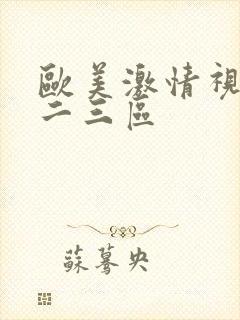 歐美激情視
二三區
蘇驀央